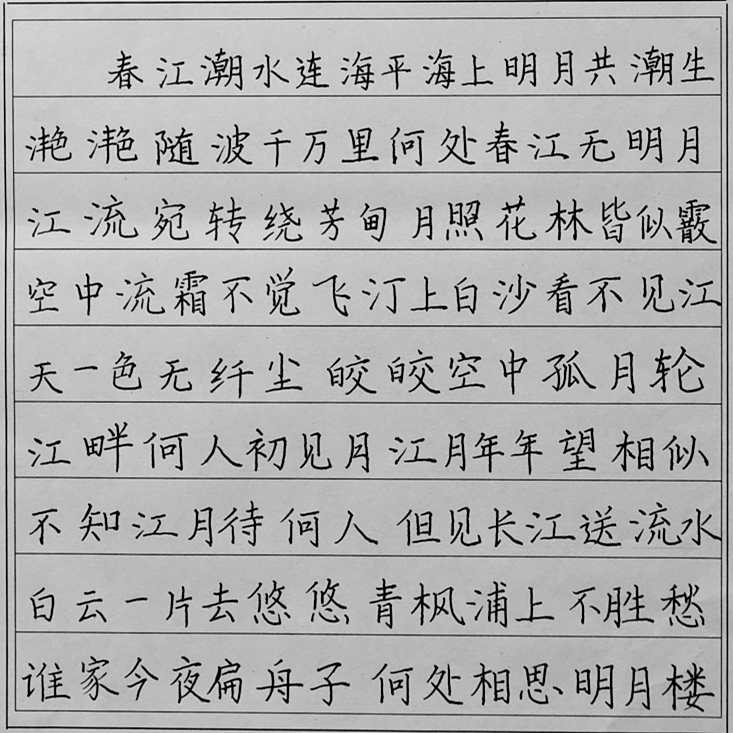 春江潮水连海平海上明月共潮生
滟滟随波千万里何处春江无明月
江流宛转绕芳甸月照花林皆似霰
空中流霜不觉飞汀上白沙看不见江
天一色无纤尘皎皎空中孤月轮
江畔何人初见月江月年年望相似
不知江月待何人但见长江送流水
白云一片去悠悠青枫浦上不胜愁
谁家今夜扁舟子何处相思明月楼